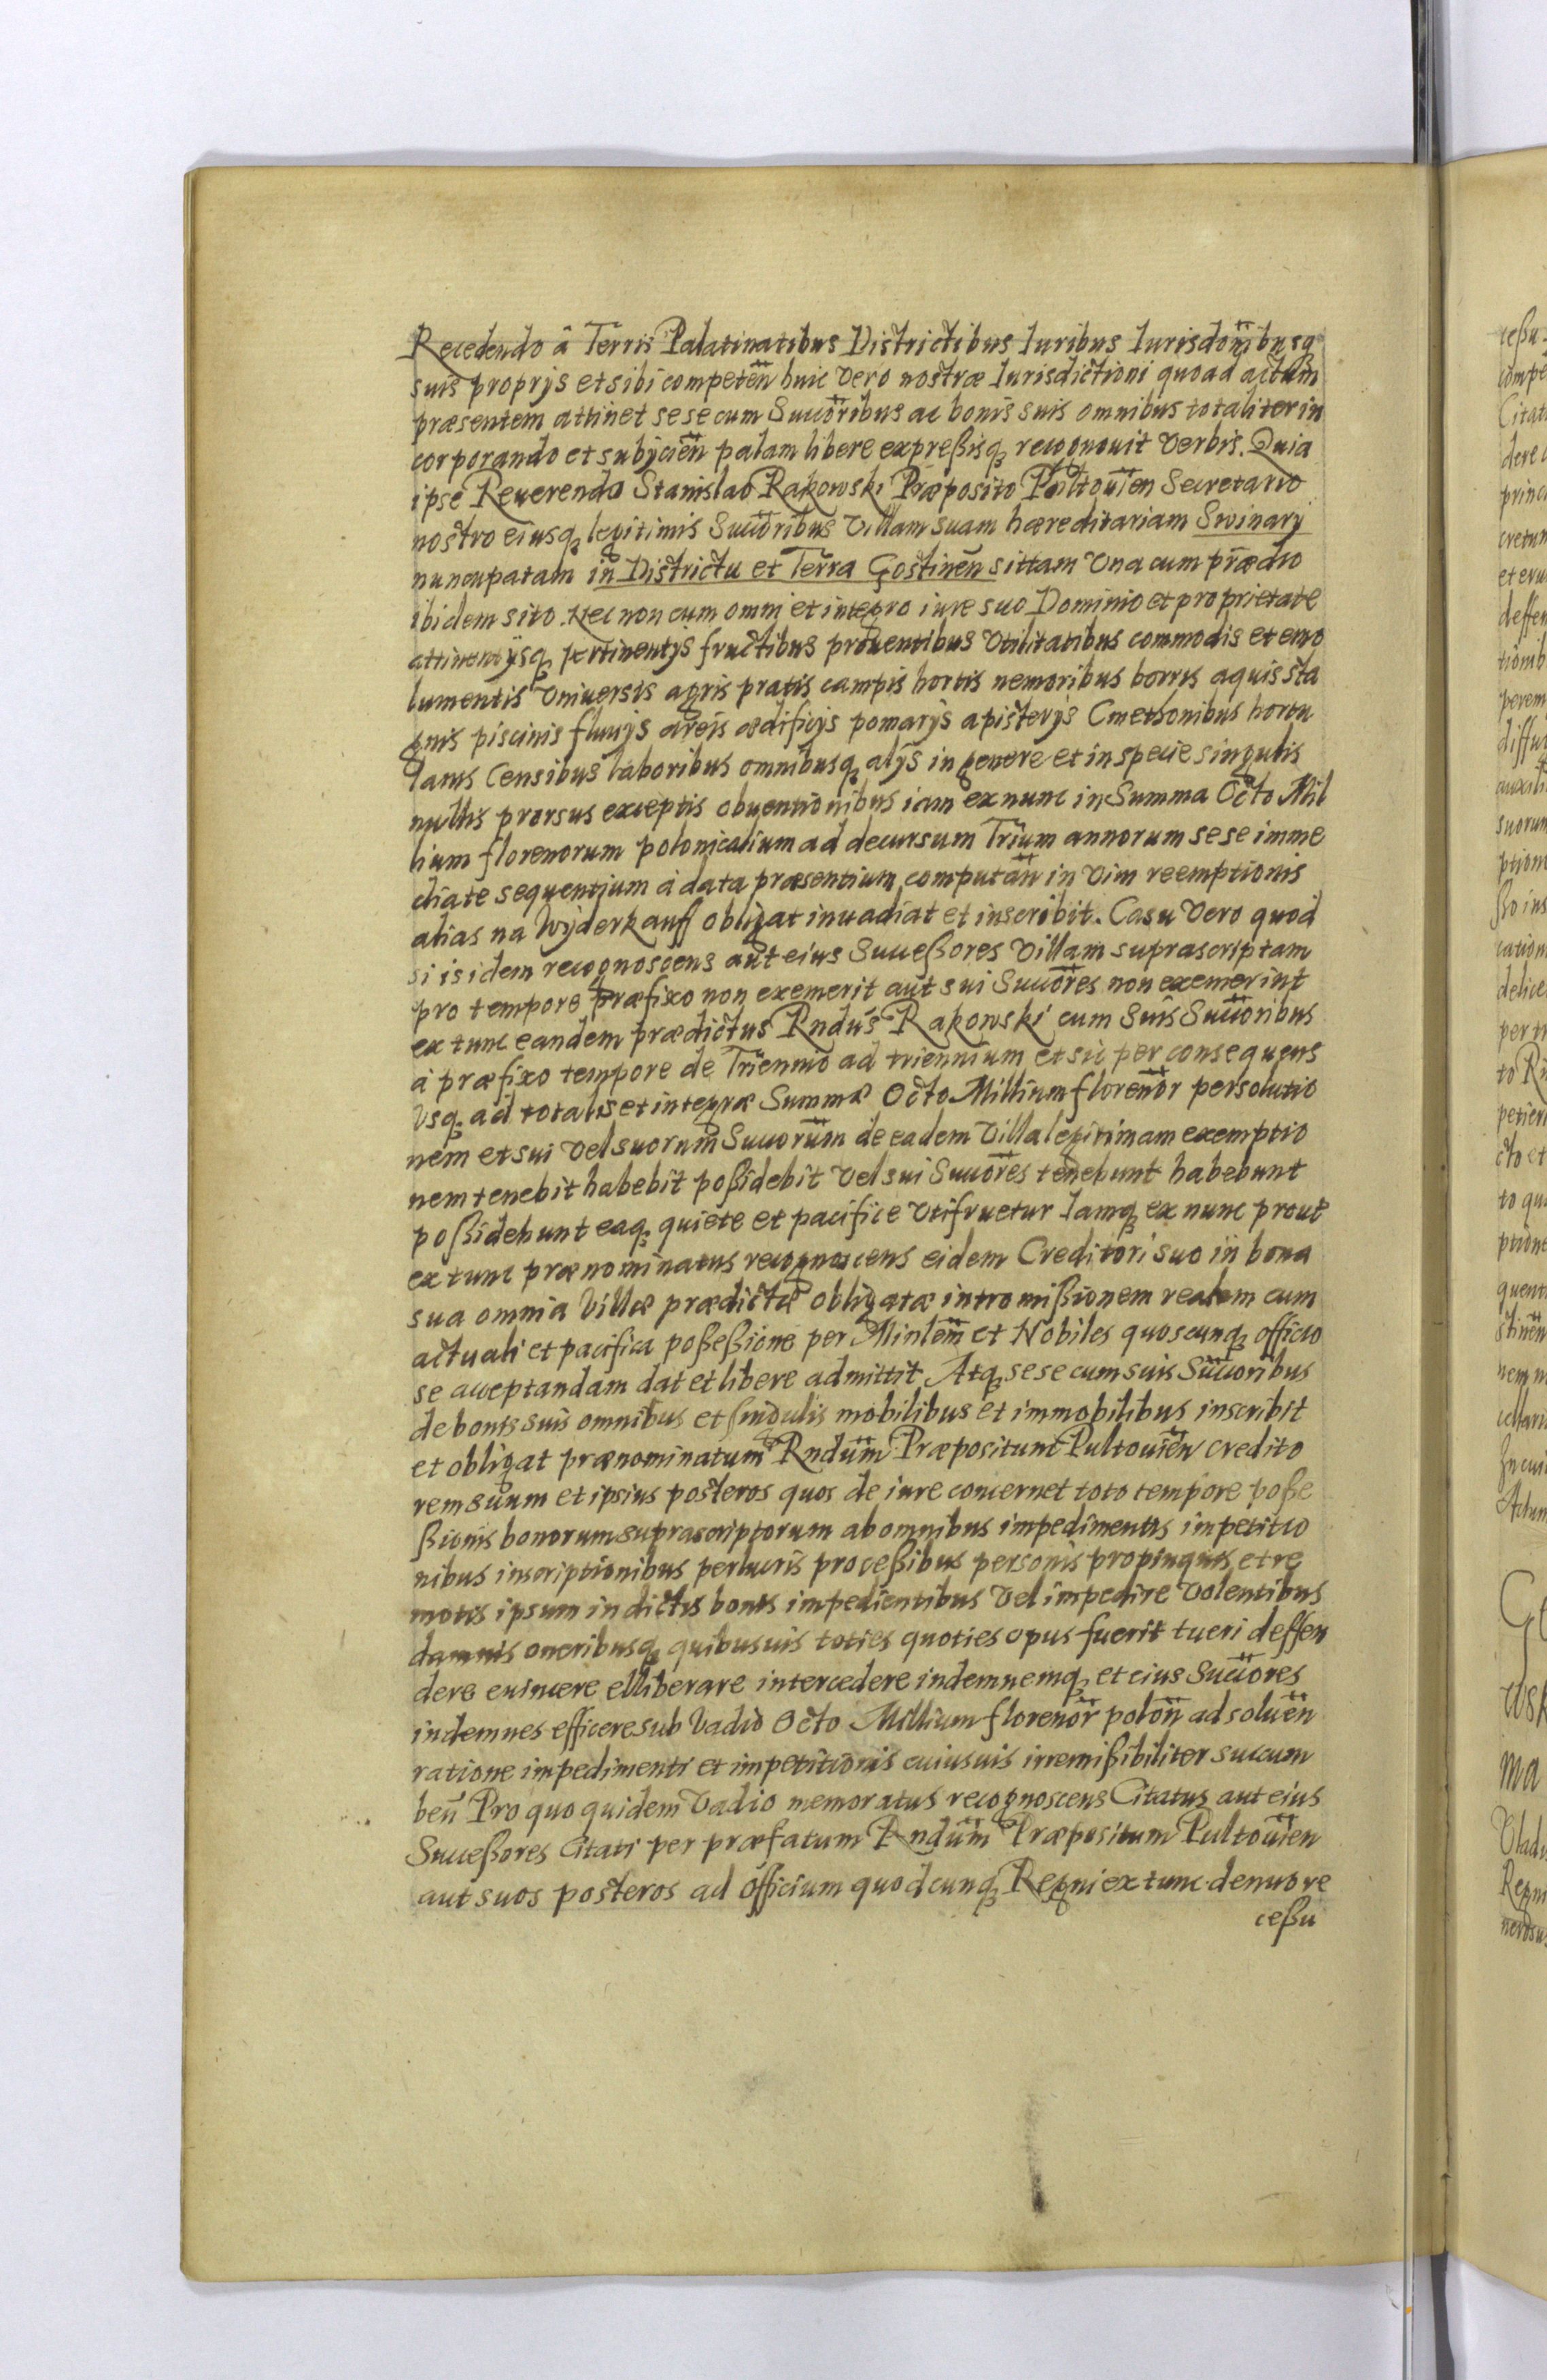 Recedendo â Terris Palatinatibus Districtibus Iuribus Iurisdonibusq
suis proprijs et sibi competen huic Vero nostræ Iurisdictioni quoad actum
præsentem attinet sese cum Succoribus ac bonis suis omnibus totaliter in
corporando et subycien palam libere expreßisq recognouit Verbis. Quia
ipse Reuerendo Stanislao Rakowski Præposito Pultouien Secretario
nostro eiusq legitimis Succoribus Villam suam hæreditariam Swinary
nuncupatam in Districtu et Terra Gostinen sittam Vna cum prædio
ibidem sito. Nec non cum omni et integro iure suo Dominio et proprietate
attinentijsq pertinentijs fructibus prouentibus Vtilitatibus commodis et emo
lumentis Vniuersis agris pratis campis hortis nemoribus borris aquis sta
gnis piscinis fluuijs areis ædificijs pomarijs apisterijs Cmethonibus hortu
lanis Censibus laboribus omnibusq alijs in genere et in specie singulis
nullis prorsus exceptis obuentionibus iam ex nunc in Summa Octo Mil
lium florenorum polonicalium ad decursum Trium annorum sese imme
diate sequentium à data præsentium computan in Vim reemptionis
alias na Wyderkauff obligat inuadiat et inscribit. Casu Vero quod
si is idem recognoscens aut eius Succeßores Villam suprascriptam
pro tempore præfixo non exemerit aut sui Succores non exemerint
ex tunc eandem prædictus Rndus Rakowski cum Suis Succoribus
à præfixo tempore de Triennio ad triennium et sic per consequens
Vsq ad totalis et integræ Summæ Octo Millium florenor persolutio
nem et sui Vel suorum Succorum de eadem Villa legitimam exemptio
nem tenebit habebit poßidebit Vel sui Succores tenebunt habebunt
poßidebunt eaq quiete et pacifice Vtifruetur Iamq ex nunc prout
ex tunc prænominatus recognoscens eidem Creditori suo in bona
sua omnia Villæ prædictæ obligatæ intromißionem realem cum
actuali et pacifica poßeßione per Minlem et Nobiles quoscunq officio
se acceptandam dat et libere admittit Atq sese cum suis Succoribus
de bonis suis omnibus et singulis mobilibus et immobilibus inscribit
et obligat prænominatum Rndum Præpositum Pultouien credito
rem suum et ipsius posteros quos de iure concernet toto tempore poße
ßionis bonorum suprascriptorum ab omnibus impedimentis impetitio
nibus inscriptionibus perlucris proceßibus personis propinquis et re
motis ipsum in dictis bonis impedientibus Vel impedire Volentibus
damnis oneribusq quibusuis toties quoties opus fuerit tueri deffen
dere euincere elliberare intercedere indemnemq et eius Succores
indemnes efficere sub Vadio Octo Millium florenor polon ad soluen
ratione impedimenti et impetitionis cuiusuis irremißibiliter succum
ben Pro quo quidem Vadio memoratus recognoscens Citatus aut eius
Succeßores Citati per præfatum Rndum Præpositum Pultouien
aut suos posteros ad officium quodcunq Regni ex tunc denuo re
ceßu